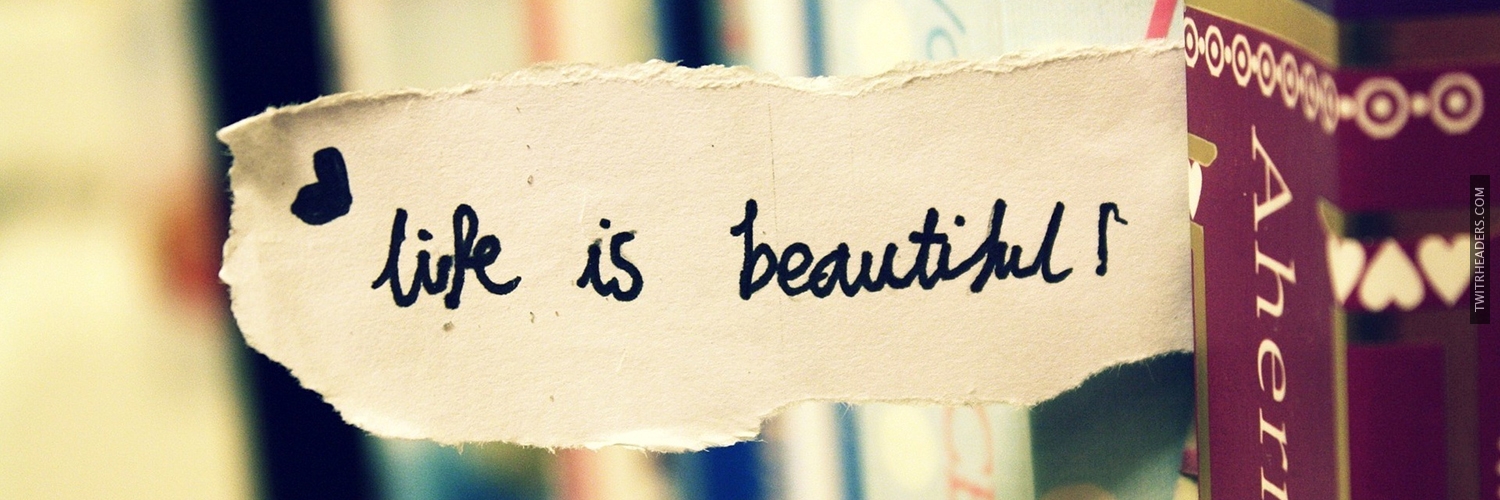 life is beautiful!
Ahern
TWITRHEADERS.COM